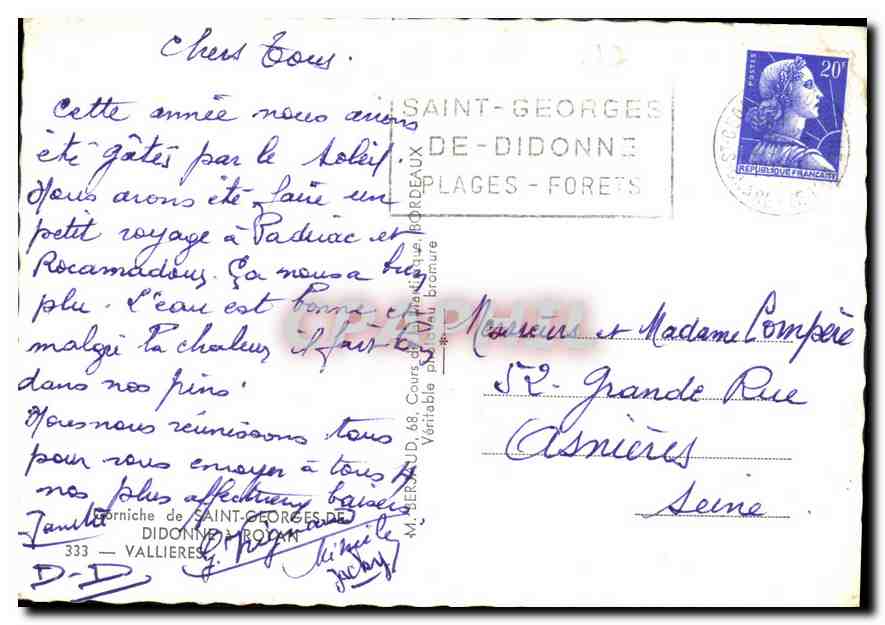 Chers Tous.
Cette année nous avons
été gâtés par le soleil.
Nous avons été faire un
petit voyage à Padirac et
Rocamadour. Ça nous a bien
plu. L'eau est bonne et
malgré la chaleur il fait bon
dans nos pins.
Nous nous réunissons tous
pour vous envoyer à tous 4
nos plus affectueux baisers
Jacky
D-D
Corniche de SAINT-GEORGES-DE-
DIDONNE A ROYAN
333 — VALLIERES
M. BERJAUD, 68, Cours de la Martinique, BORDEAUX
Véritable photo au bromure
SAINT-GEORGES
DE-DIDONNE
PLAGES-FORETS
POSTES
20F
REPUBLIQUE FRANÇAISE
Messieurs et Madame Compère
52 - Grande Rue
Asnières
Seine